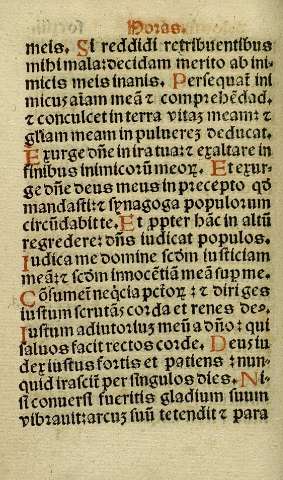 Horas.
meis. Si reddidi retribuentibus
mihi mala: decidam merito ab ini-
micis meis inanis. Persequat̃ ini
micus aĩam meã ⁊ comprehẽdad.
⁊ conculcet in terra vitaʒ meam: ⁊
gl̃iam meam in puluereʒ deducat.
Exurge dñe in ira tua: ⁊ exaltare in
finibus inimicorũ meoꝝ. Et exur-
ge dñe deus meus in precepto qð
mandasti: ⁊ synagoga populorum
circũdabit te. Et ꝓpter hãc in altũ
regredere: dñs iudicat populos.
Iudica me domine scðm iusticiam
meã: ⁊ scðm innocẽtiã meã sup me.
Cõsumet̃ neq̃cia pctõꝝ: ⁊ dirиges
iustum scrutãs corda et renes deꝰ.
Iustum adiutoriuʒ meũ a dño: qui
saluos facit rectos corde. Deus iu
dex iustus fortis et patiens: nun-
quid irascit̃ per singulos dies. Ni-
si conuersi fueritis gladium suum
vibrauit: arcuʒ suũ tetendit ⁊ para